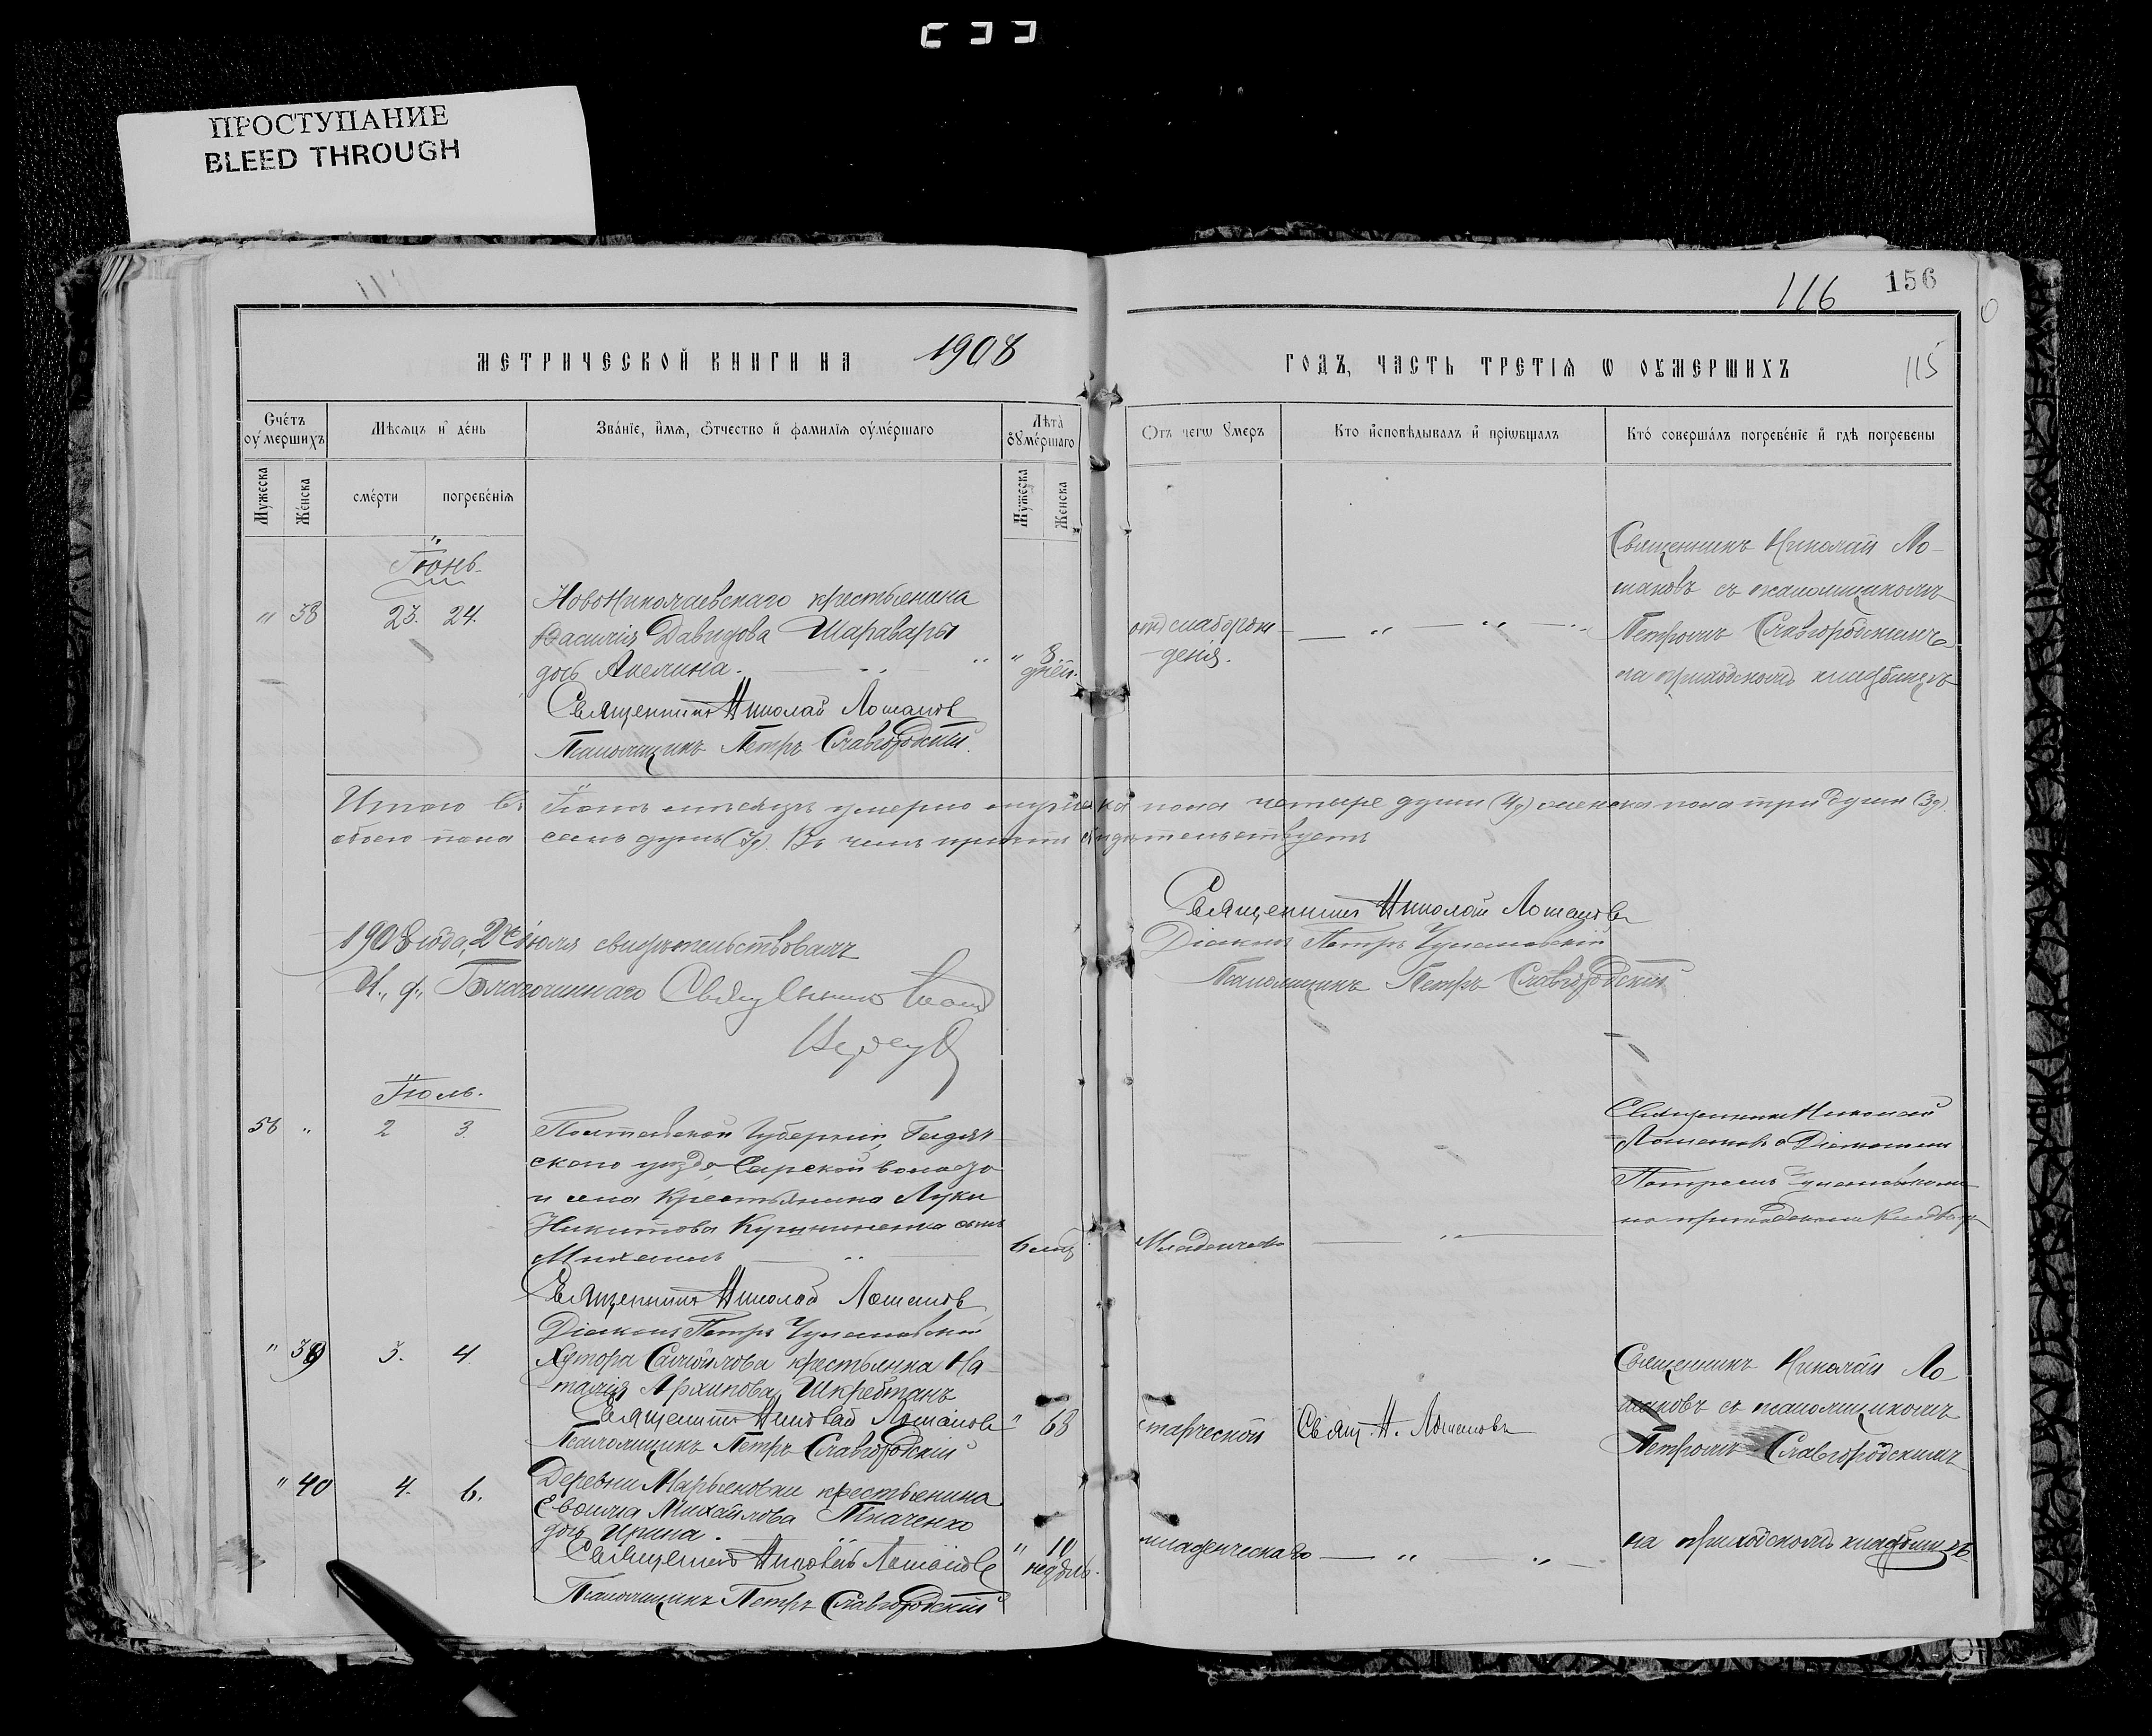 ПРОСТУПАНИЕ
BLEED THROUGH
116 156
МЕТРИЧЕСКОЙ КНИГИ НА 1908
ГОДЪ, ЧАСТЬ ТРЕТІѦ Ѡ ОУМЕРШИХЪ
115
Счéтъ оумершихъ
Мѣсѧцъ и дéнь
Звáніе, имѧ, ѻтчество и фамиліѧ оумéршаго
Лѣтà оумéршаго
Отъ чегѡ оумеръ
Кто исповѣдывалъ и пріѡбщалъ
Ктó совершáлъ погребéніе и гдѣ погребены
Мужеска
Жéнска
смéрти
погребéніѧ
Мужеска
Женска
Іюнь.
" 38 23. 24.
Новониколаевскаго крестьянина
Василія Давидова Шаравары
дочь Акелина. " " 8 дней.
Священникъ Николай Лошаковъ
Псаломщикъ Петръ Славгородскій.
отъ слаборож-
денія.
Священникъ Николай Ло-
шаковъ съ псаломщикомъ
Петромъ Славгородскимъ
на приходскомъ кладбищѣ
Итого въ Іюнѣ мѣсяцѣ умерло мужска пола четыре души (4д) женска пола три души (3д).
обоего пола семь душъ (7д). Въ чемъ причтъ свидѣтельствуетъ
Священникъ Николай Лошаковъ
Діаконъ Петръ
Псаломщикъ Петръ Славгородскій
1908 года, 2 іюля свидѣтельствовалъ
И. д. Благочиннаго Священникъ
Іюль.
56 " 2 3.
Полтавской губерніи, Гадяч-
скаго уѣзда, Сарской волости
и села крестьянина Луки
Никитова сынъ
Михаилъ " 6 мѣс.
Священникъ Николай Лошаковъ
Діаконъ Петръ
Младенческ.
Священникъ Николай
Лошаковъ съ Діакономъ
Петромъ
на приходскомъ кладбищѣ
" 39 3. 4.
Хутора Самойлова крестьянка На-
талія Архипова Шкребтанъ
Священникъ Николай Лошаковъ " 68
Псаломщикъ Петръ Славгородскій
старческой
Свящ. Н. Лошаковъ
Священникъ Николай Ло-
шаковъ съ псаломщикомъ
Петромъ Славгородскимъ
" 40 4. 6.
Деревни Марьяновки крестьянина
Михайлова Ткаченко
дочь Ирина. " 10 недѣль.
Священникъ Николай Лошаковъ
Псаломщикъ Петръ Славгородскій
младенческаго
на приходскомъ кладбищѣ